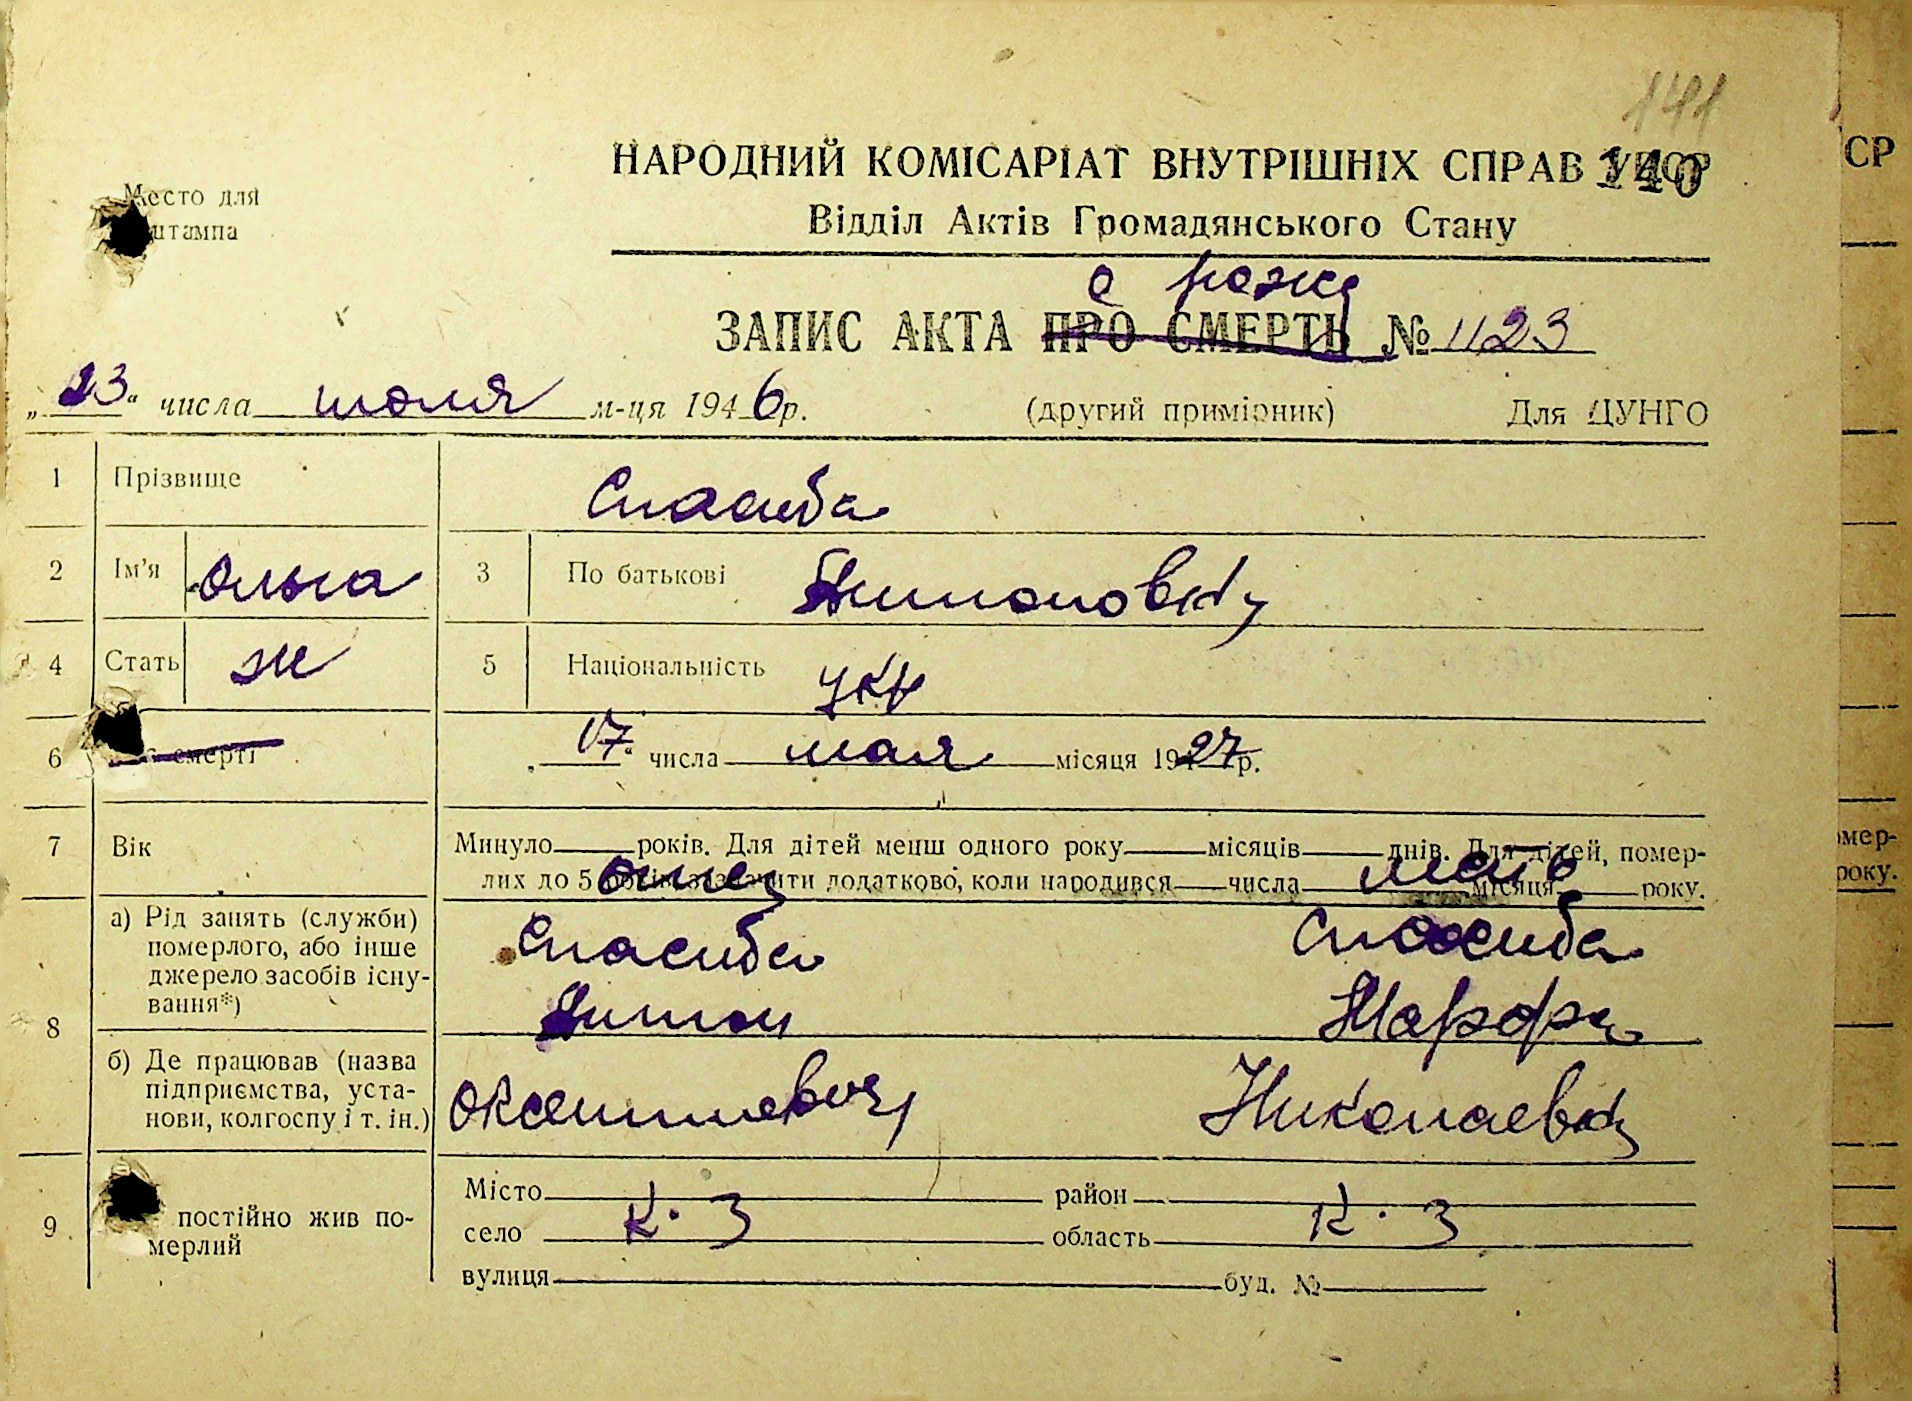 141
НАРОДНИЙ КОМІСАРІАТ ВНУТРІШНІХ СПРАВ УРСР
140
Место для
штампа
Відділ Актів Громадянського Стану
о рожд
ЗАПИС АКТА ПРО СМЕРТЬ № 1123
„23“ числа июля м-ця 1946 р. (другий примірник) Для ЦУНГО
1 Прізвище Спасиба
2 Ім'я Ольга 3 По батькові Антоновна
4 Стать ж 5 Національність укр
6 смерті „17“ числа мая місяця 1927 р.
7 Вік Минуло років. Для дітей менш одного року місяців днів. Для дітей, помер-
лих до 5 років зазначити додатково, коли народився числа місяця року.
отец мать
8 а) Рід занять (служби) померлого, або інше джерело засобів існу-вання*)
Спасиба Спасиба
Антон Марфа
б) Де працював (назва підприємства, уста-нови, колгоспу і т. ін.)
Николаевна
9 постійно жив по-мерлий
Місто район
село К. З область К. З
вулиця буд. №
СР
омер-
року.